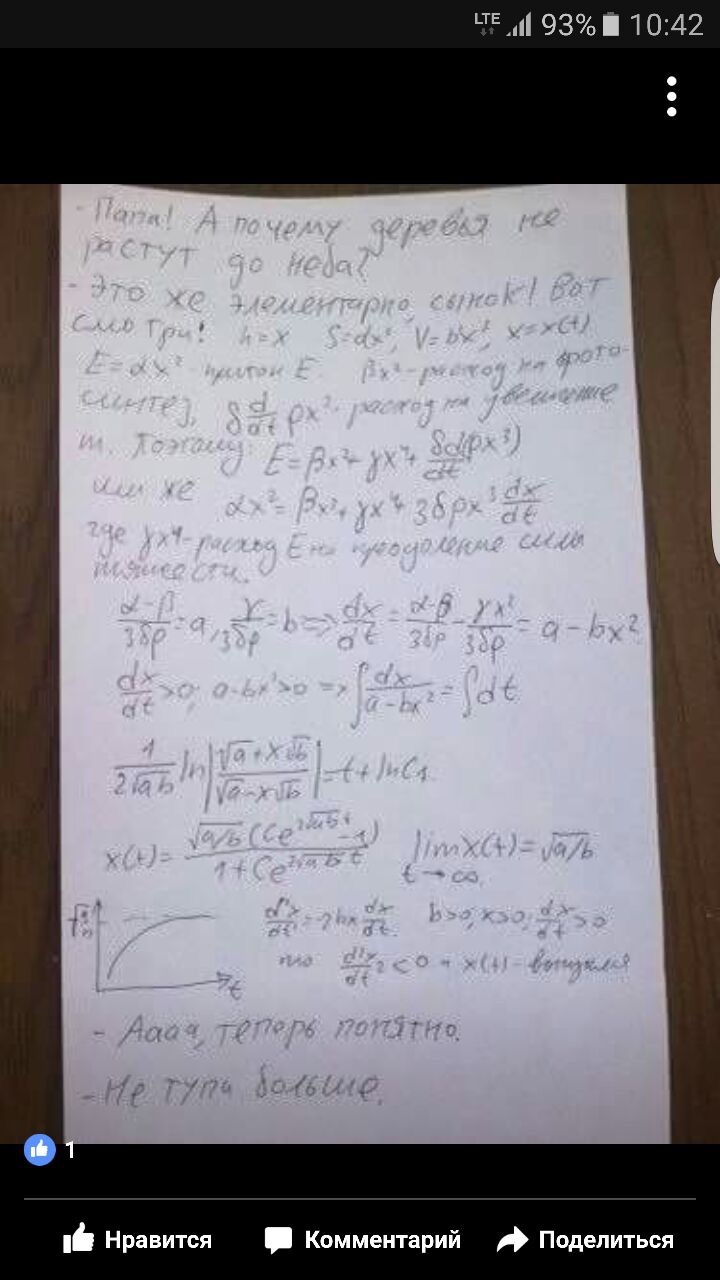 LTE 93% 10:42
- Папа! А почему деревья не
растут до неба?
- Это же элементарно, сынок! Вот
смотри! h=x S=dx², V=bx³, x=x(t)
E=αx² - приток E. βx² - расход на фото-
синтез, δ d/dt ρx³ - расход на увеличение
m. Поэтому: E=βx²+γx⁴+δd(ρx³)/dt
или же αx²=βx²+γx⁴+3δρx² dx/dt
где γx⁴ - расход E на преодоление силы
тяжести.
(α-β)/3δρ=a, γ/3δρ=b => dx/dt = (α-β)/3δρ - γx²/3δρ = a-bx²
dx/dt>0; a-bx²>0 => ∫dx/(a-bx²)=∫dt
1/(2√ab) ln|(√a+x√b)/(√a-x√b)|=t+lnC₁.
x(t)=√a/b(Ce^(2√ab t)-1)/(1+Ce^(2√ab t)) lim x(t)=√a/b
t→∞
√a/b d²x/dt²=-2bx dx/dt. b>0, x>0, dx/dt>0
то d²x/dt²<0 - x(t) - выпуклая
t
- Аааа, теперь понятно.
- Не тупи больше.
1
Нравится Комментарий Поделиться